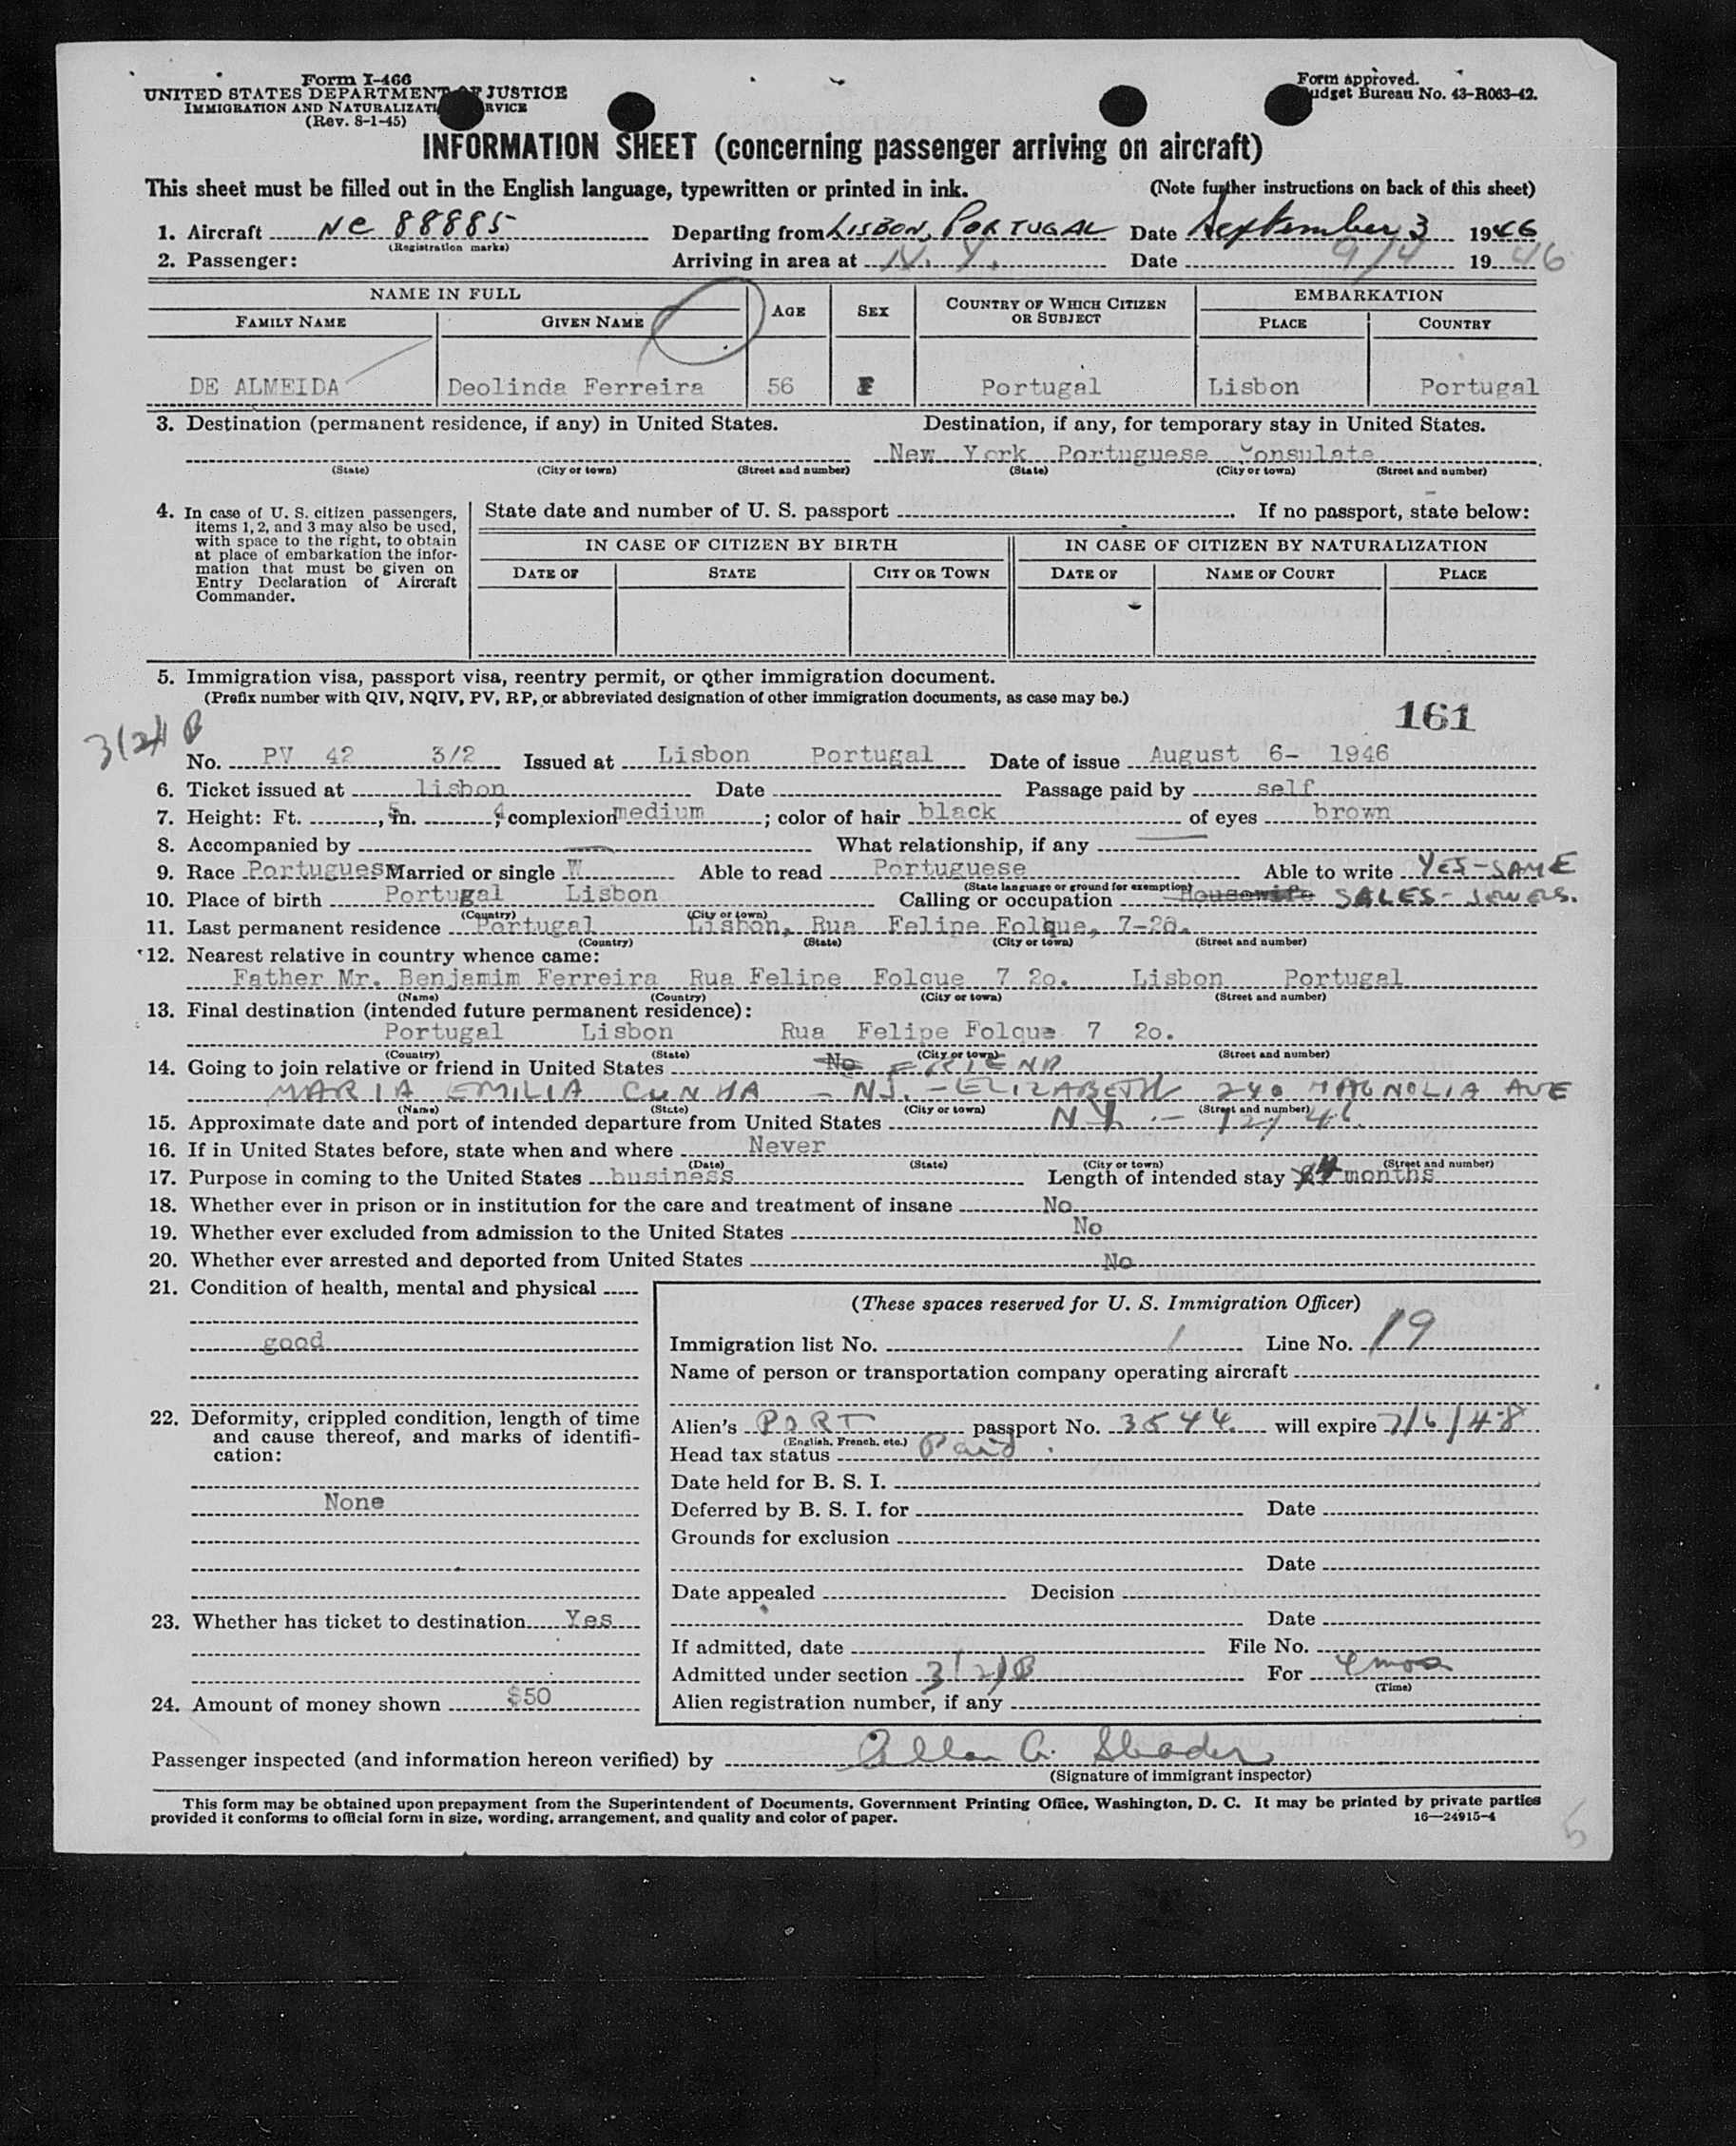 Form I-466
UNITED STATES DEPARTMENT OF JUSTICE
IMMIGRATION AND NATURALIZATION SERVICE
(Rev. 8-1-45)
Form approved.
Budget Bureau No. 43-R063-42.
INFORMATION SHEET (concerning passenger arriving on aircraft)
This sheet must be filled out in the English language, typewritten or printed in ink. (Note further instructions on back of this sheet)
1. Aircraft NC 88885 Departing from LISBON, PORTUGAL Date September 3 1946
(Registration marks)
2. Passenger: Arriving in area at N. Y. Date 9/4 1946
NAME IN FULL AGE SEX COUNTRY OF WHICH CITIZEN OR SUBJECT EMBARKATION
FAMILY NAME GIVEN NAME PLACE COUNTRY
DE ALMEIDA Deolinda Ferreira 56 F Portugal Lisbon Portugal
3. Destination (permanent residence, if any) in United States. Destination, if any, for temporary stay in United States.
New York Portuguese Consulate
(State) (City or town) (Street and number) (State) (City or town) (Street and number)
4. In case of U. S. citizen passengers, items 1, 2, and 3 may also be used, with space to the right, to obtain at place of embarkation the information that must be given on Entry Declaration of Aircraft Commander.
State date and number of U. S. passport If no passport, state below:
IN CASE OF CITIZEN BY BIRTH IN CASE OF CITIZEN BY NATURALIZATION
DATE OF STATE CITY OR TOWN DATE OF NAME OF COURT PLACE
5. Immigration visa, passport visa, reentry permit, or other immigration document.
(Prefix number with QIV, NQIV, PV, RP, or abbreviated designation of other immigration documents, as case may be.)
161
3(2) B
No. PV 42 3/2 Issued at Lisbon Portugal Date of issue August 6- 1946
6. Ticket issued at lisbon Date Passage paid by self
7. Height: Ft. 5, in. 4; complexion medium; color of hair black of eyes brown
8. Accompanied by — What relationship, if any
9. Race Portuguese Married or single W Able to read Portuguese Able to write YES-SAME
(State language or ground for exemption)
10. Place of birth Portugal Lisbon Calling or occupation Housewife SALES - JEWELS.
(Country) (City or town)
11. Last permanent residence Portugal Lisbon, Rua Felipe Folque, 7-2o.
(Country) (State) (City or town) (Street and number)
12. Nearest relative in country whence came:
Father Mr. Benjamim Ferreira Rua Felipe Folque 7 2o. Lisbon Portugal
(Name) (Country) (City or town) (Street and number)
13. Final destination (intended future permanent residence):
Portugal Lisbon Rua Felipe Folque 7 2o.
(Country) (State) (City or town) (Street and number)
14. Going to join relative or friend in United States No FRIEND
MARIA EMILIA CUNHA - NJ. - ELIZABETH 240 MAGNOLIA AVE
(Name) (State) (City or town) (Street and number)
15. Approximate date and port of intended departure from United States NY - 12/46
16. If in United States before, state when and where Never
(Date) (State) (City or town) (Street and number)
17. Purpose in coming to the United States business Length of intended stay 4 months
18. Whether ever in prison or in institution for the care and treatment of insane No
19. Whether ever excluded from admission to the United States No
20. Whether ever arrested and deported from United States No
21. Condition of health, mental and physical
good
22. Deformity, crippled condition, length of time and cause thereof, and marks of identification:
None
23. Whether has ticket to destination Yes
24. Amount of money shown $50
(These spaces reserved for U. S. Immigration Officer)
Immigration list No. 1 Line No. 19
Name of person or transportation company operating aircraft
Alien's PORT passport No. 3544 will expire 7/6/48
(English, French, etc.)
Head tax status Paid
Date held for B. S. I.
Deferred by B. S. I. for Date
Grounds for exclusion
Date
Date appealed Decision
Date
If admitted, date File No.
Admitted under section 3(2)B For 4 mos
(Time)
Alien registration number, if any
Passenger inspected (and information hereon verified) by
(Signature of immigrant inspector)
This form may be obtained upon prepayment from the Superintendent of Documents, Government Printing Office, Washington, D. C. It may be printed by private parties
provided it conforms to official form in size, wording, arrangement, and quality and color of paper. 16—24915-4
5